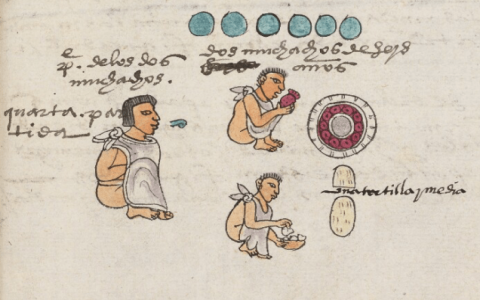 pe. delos dos
muchachos.
dos muchachos de seys
años
quarta. par
tida
una tortilla y media